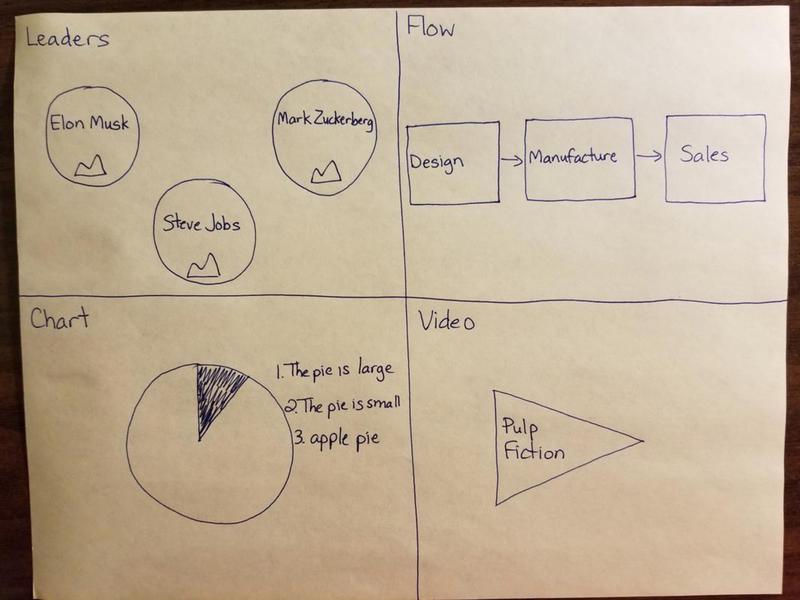 Leaders
Elon Musk
Mark Zuckerberg
Steve Jobs
Flow
Design
Manufacture
Sales
Chart
1. The pie is large
2. The pie is small
3. apple pie
Video
Pulp
Fiction